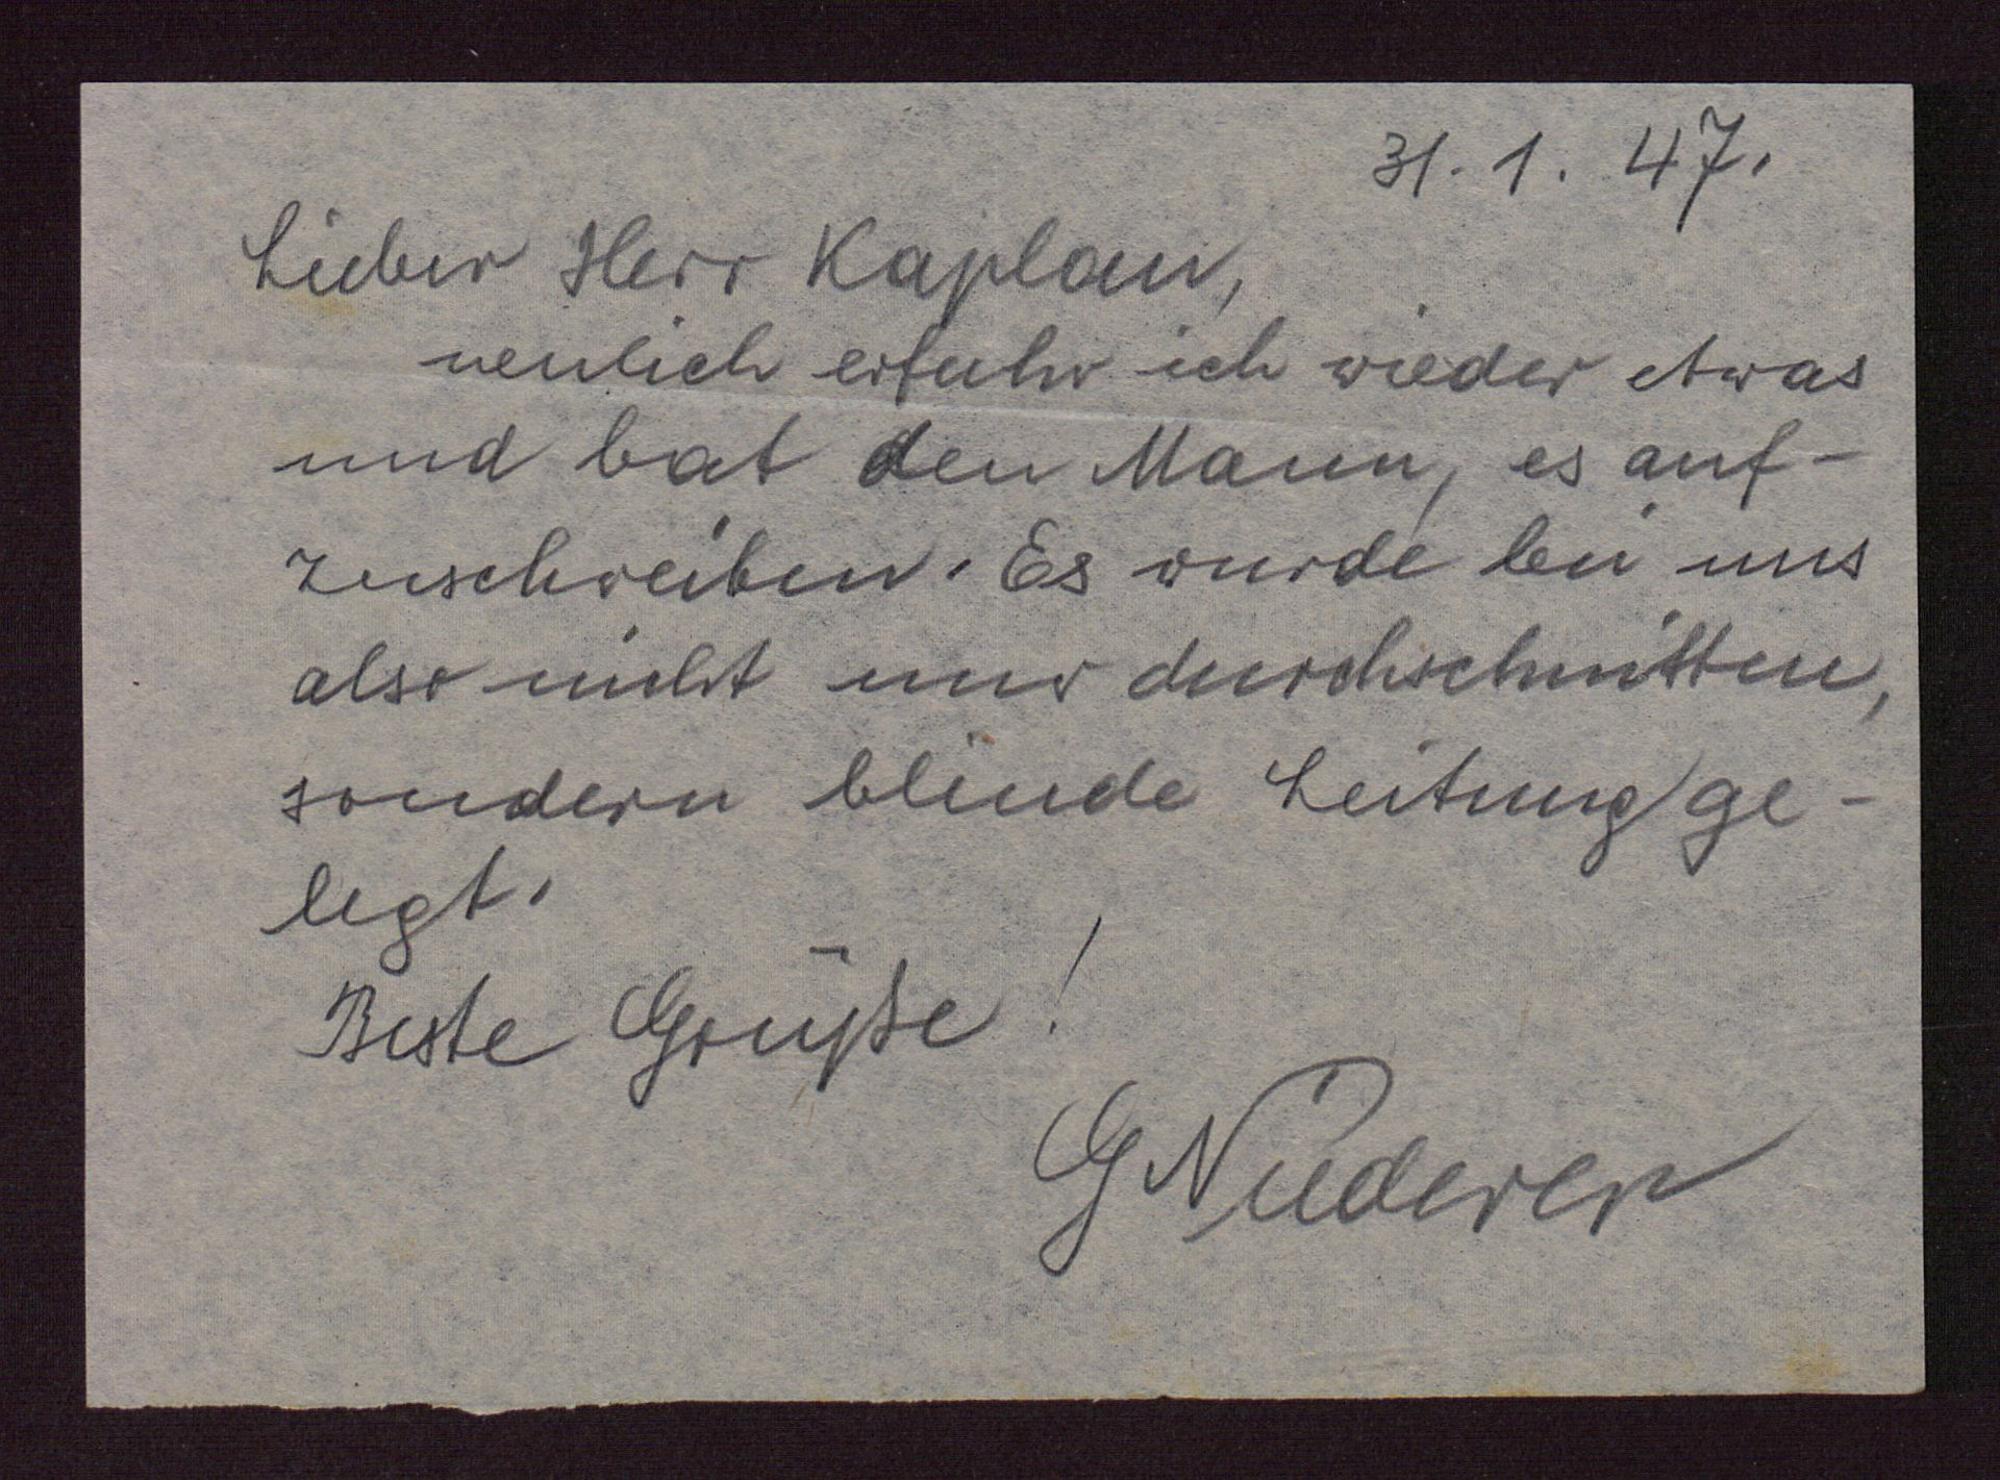 31. 1. 47.
Lieber Herr Kaplan,
neulich erfuhr ich wieder etwas
und bat den Mann, es auf-
zuschreiben. Es wurde bei uns
also nicht nur durchschnitten,
sondern blinde Leitung ge-
legt.
Beste Grüße!
G Niederer